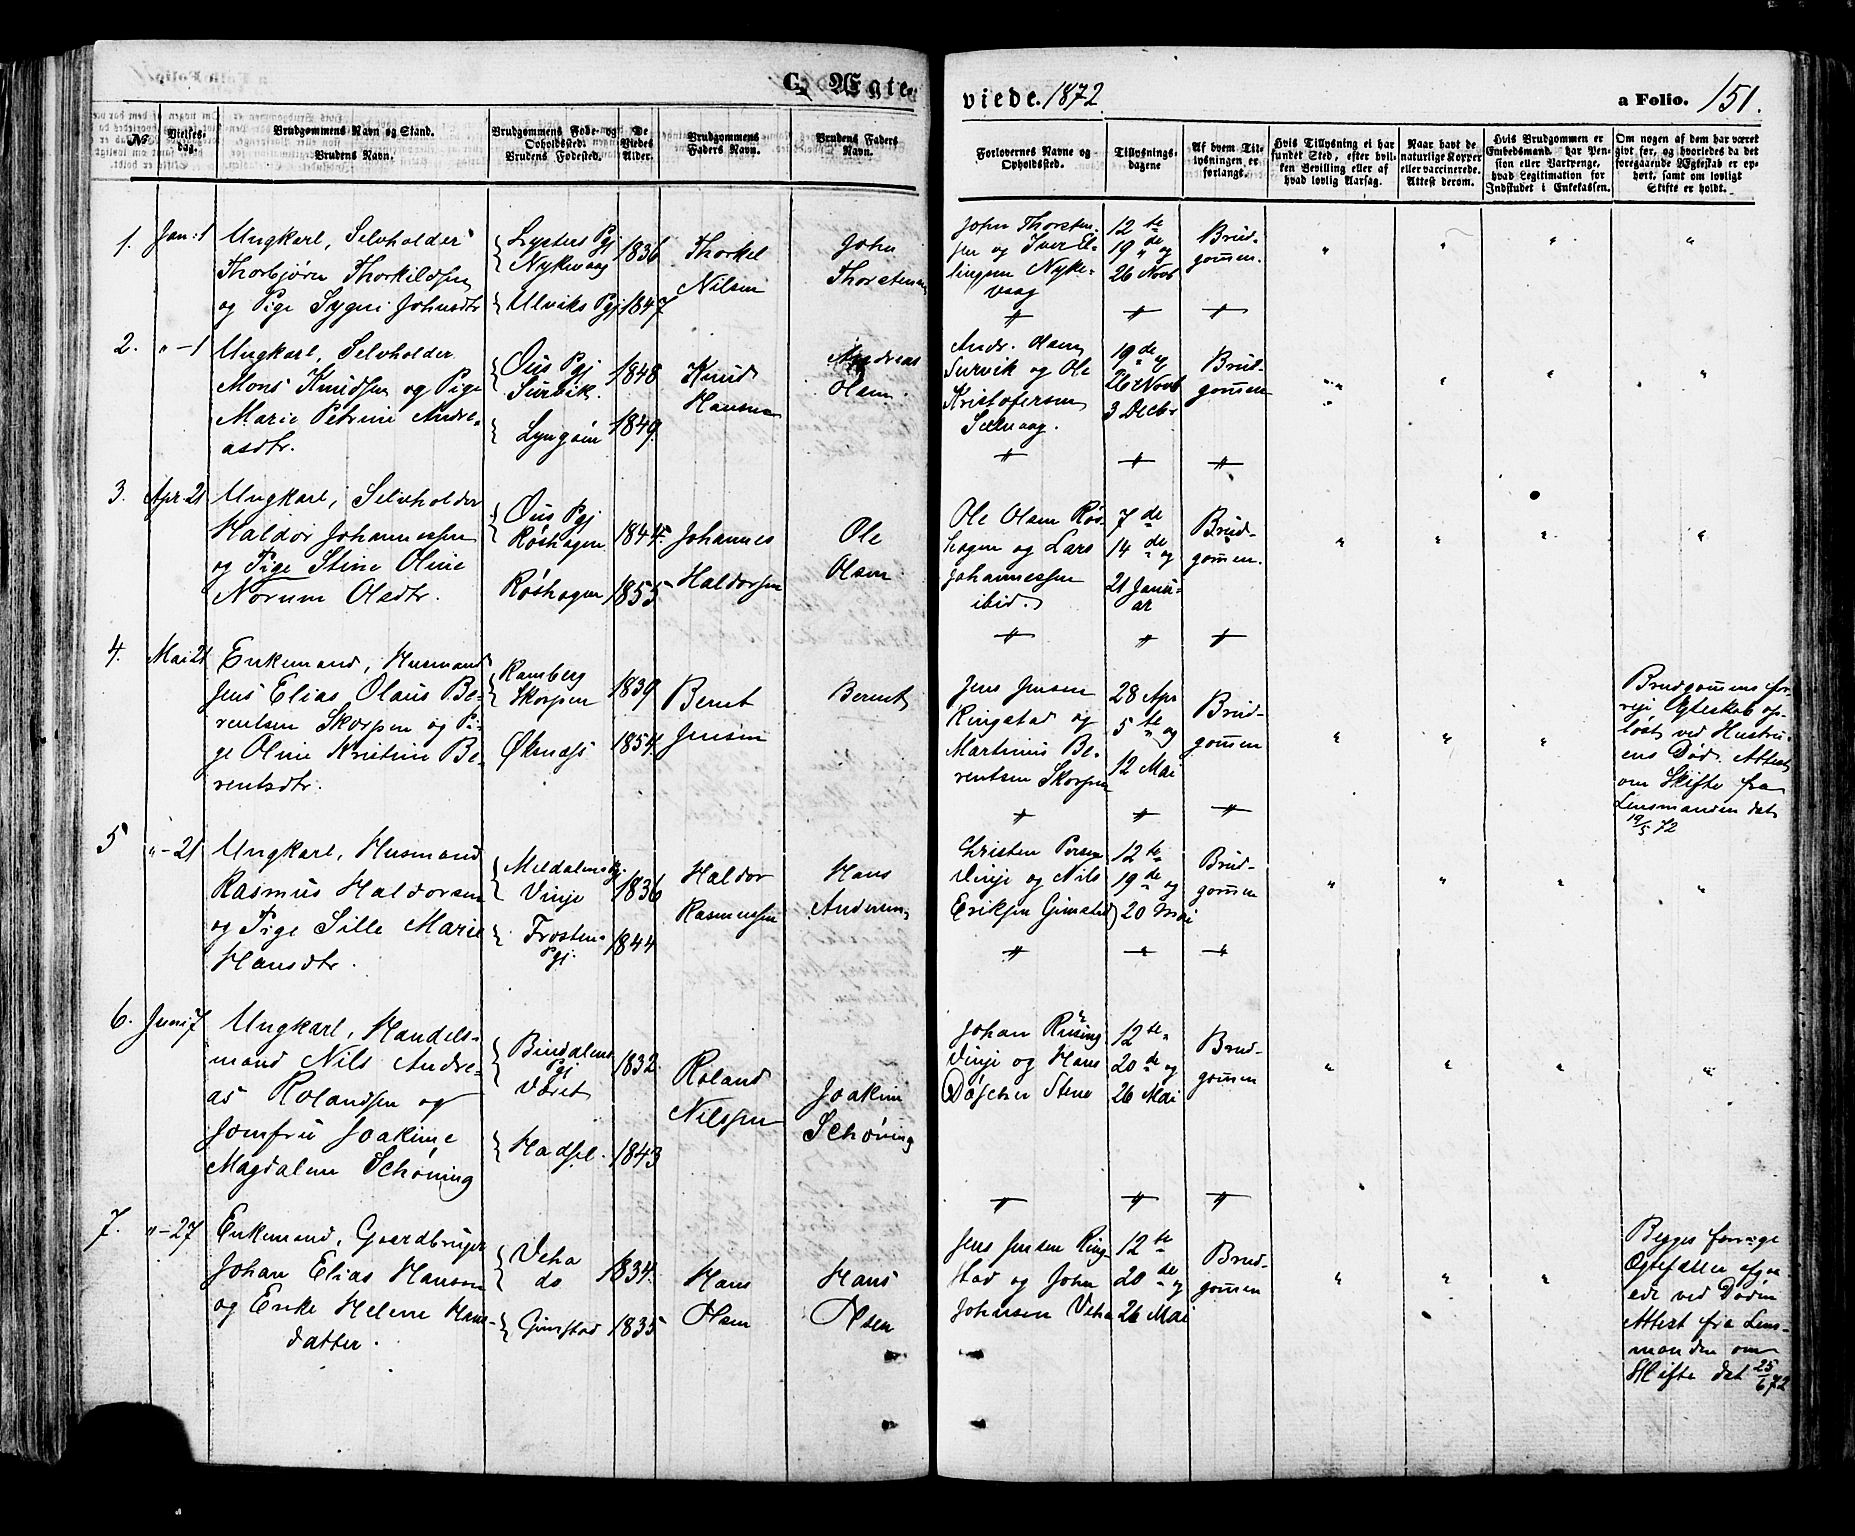 C. Ægte-
viede. 1872
a Folio. 151.
No
Vielses-
dag.
Brudgommens Navn og Stand.
Brudens Navn.
Brudgommens Føde- og
Opholdssted.
Brudens Fødested.
De
Viedes
Alder.
Brudgommens
Faders Navn.
Brudens Faders
Navn.
Forlovernes Navne og
Opholdssted.
Tillysnings-
dagene
Af hvem Til-
lysningen er
forlangt.
Hvis Tillysning ei har
fundet Sted, efter hvil-
ken Bevilling eller af
hvad lovlig Aarsag.
Naar havt de
naturlige Kopper
eller vaccinerede.
Attest derom.
Hvis Brudgommen er
Embedsmand, har Pen-
sion eller Vartpenge,
hvad Legitimation for
Indskudet i Enkekassen.
Om nogen af dem har været
givt før, og hvorledes da det
foregaaende Ægteskab er op-
hørt, samt om lovligt
Skifte er holdt.
1.
Jan: 1
Ungkarl, Selvholder
Thorbjørn Thorkildsen
og Pige Sygni Johnsdtr
Lysters Pgj
Nykvaag
Ulviks Pgj
1836
1847
Thorkel
Nilsen
John
Thorstensen
John Thorsten-
sen og Iver El-
lingsen Nyke-
vaag
12 te
19 de og
26 Novb
Brud-
gommen.
2.
" - 1
Ungkarl, Selvholder
Mons Knudsen og Pige
Marie Petrine Andre-
asdtr.
Øus Pgj
Survik.
Lyngøen
1848
1849
Knud
Hansen
Andreas
Olsen.
Andr. Olsen
Survik og Ole
Kristofersen
19 de og
26 Novb
3 Decbr
Brud-
gommen
3.
Apr. 21
Ungkarl, Selvholder
Haldor Johannessen
og Pige Stine Oline
Norum Olsdtr.
Øus Pgj
Røshagen
Røshagen
1844.
1855
Johannes
Haldorsen
Ole
Olsen
Ole Olsen Røs-
hagen og Lars
Johannessen
ibid.
7 de
14 de og
21 Janu-
ar
Brud-
gommen.
4.
Mai 21
Enkemand, Husmand
Jens Elias Olaus Be-
rentsen Skorpen og Pi-
ge Oline Kristine Be-
rentsdtr.
Ramberg
Skorpen
Øksnæs
1839
1854.
Bernt
Jensen
Bernt
Jens Jensen
Ringstad og
Martinus Be-
rentsen Skorpen
28 Apr
5 te og
12 Mai
Brud-
gommen
Brudgommens for-
rige Egteskab op-
løst ved Hustru-
ens Død. Attest
om Skifte fra
Lensmanden dat
19/5 72
5
" - 21
Ungkarl, Husmand
Rasmus Haldorsen
og Pige Sille Marie
Hansdtr.
Meldalens Pgj.
Vinje
Frosten
Pgj.
1836
1844
Haldor
Rasmussen
Hans
Andersen
Christen Persen
Vinje og Nils
Eriksen Gimstad
12 te
19 de og
20 Mai
Brud-
gommen
6.
Juni 7
Ungkarl, Handels-
mand Nils Andre-
as Rolandsen og
Jomfru Joakime
Magdalene Schöning
Bindalens
Pgj
Været
Hadsel.
1832.
1843
Roland
Nilssen
Joakim
Schöning
Johan Rüsing
Vinje og Hans
Døscher Stene
12 te
20 de og
26 Mai
Brud-
gommen
7.
" - 27
Enkemand, Gaardbruger
Johan Elias Hansen
og Enke Helene Hans-
datter.
Veha
do
Gimstad
1834.
1835
Hans
Olsen
Hans
Olsen
Jens Jensen Ring-
stad og John
Johnsen Veha
12 te
20 de og
26 Mai
Brud-
gommen
Begges forrige
Egtefæller afga-
ede ved Døden
Attest fra Lens-
manden om
Skifte dat 25/6 72